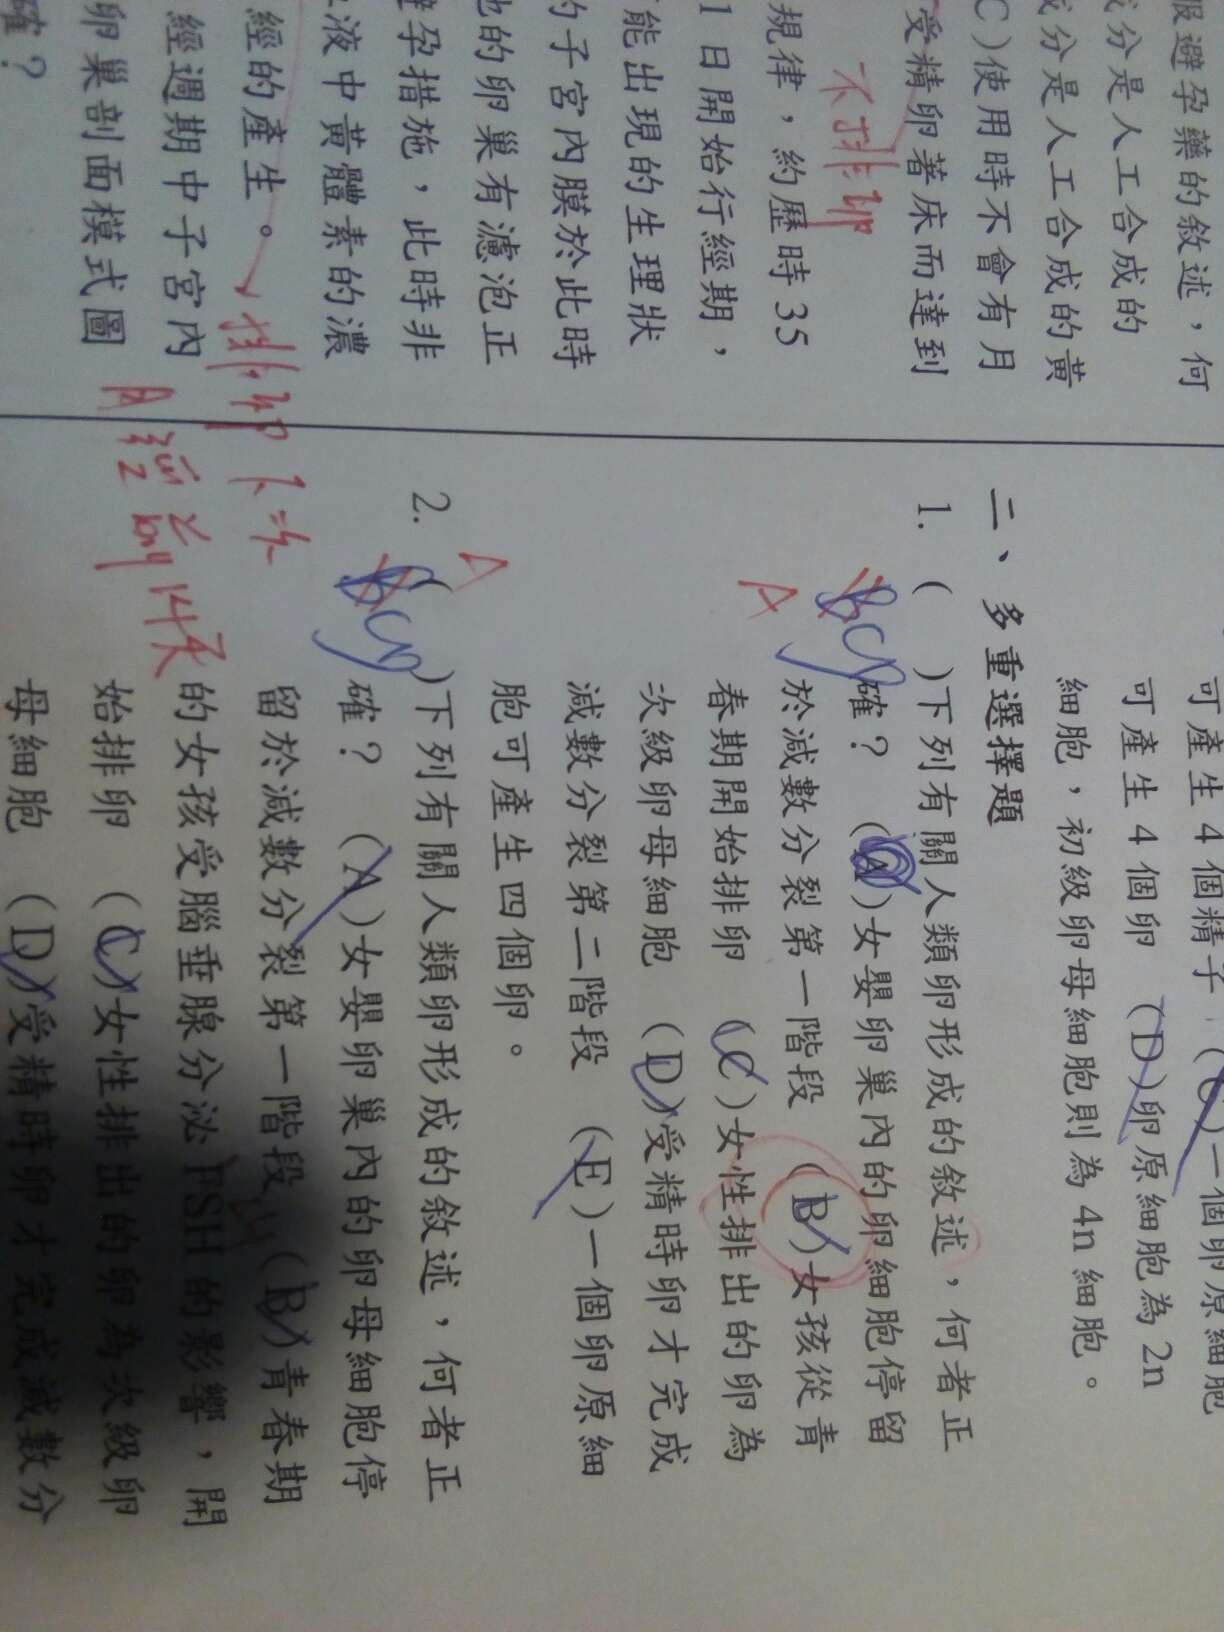 服避孕藥的敘述，何
成分是人工合成的
成分是人工合成的黃
C)使用時不會有月
受精卵著床而達到
不排卵
規律，約歷時35
1日開始行經期，
能出現的生理狀
的子宮內膜於此時
她的卵巢有濾泡正
避孕措施，此時非
液中黃體素的濃
經的產生。
排卵 下次
經週期中子宮內
月經前14天
卵巢剖面模式圖
確？
可產生4個精子 (C)一個卵原細胞
可產生4個卵 (D)卵原細胞為2n
細胞，初級卵母細胞則為4n細胞。
二、多重選擇題
1. ( )下列有關人類卵形成的敘述，何者正
BCD
A
確？ (A)女嬰卵巢內的卵細胞停留
於減數分裂第一階段 (B)女孩從青
春期開始排卵 (C)女性排出的卵為
次級卵母細胞 (D)受精時卵才完成
減數分裂第二階段 (E)一個卵原細
胞可產生四個卵。
2. ( )下列有關人類卵形成的敘述，何者正
A
BCD
確？ (A)女嬰卵巢內的卵母細胞停
留於減數分裂第一階段 (B)青春期
的女孩受腦垂腺分泌FSH的影響，開
始排卵 (C)女性排出的卵為次級卵
母細胞 (D)受精時卵才完成減數分